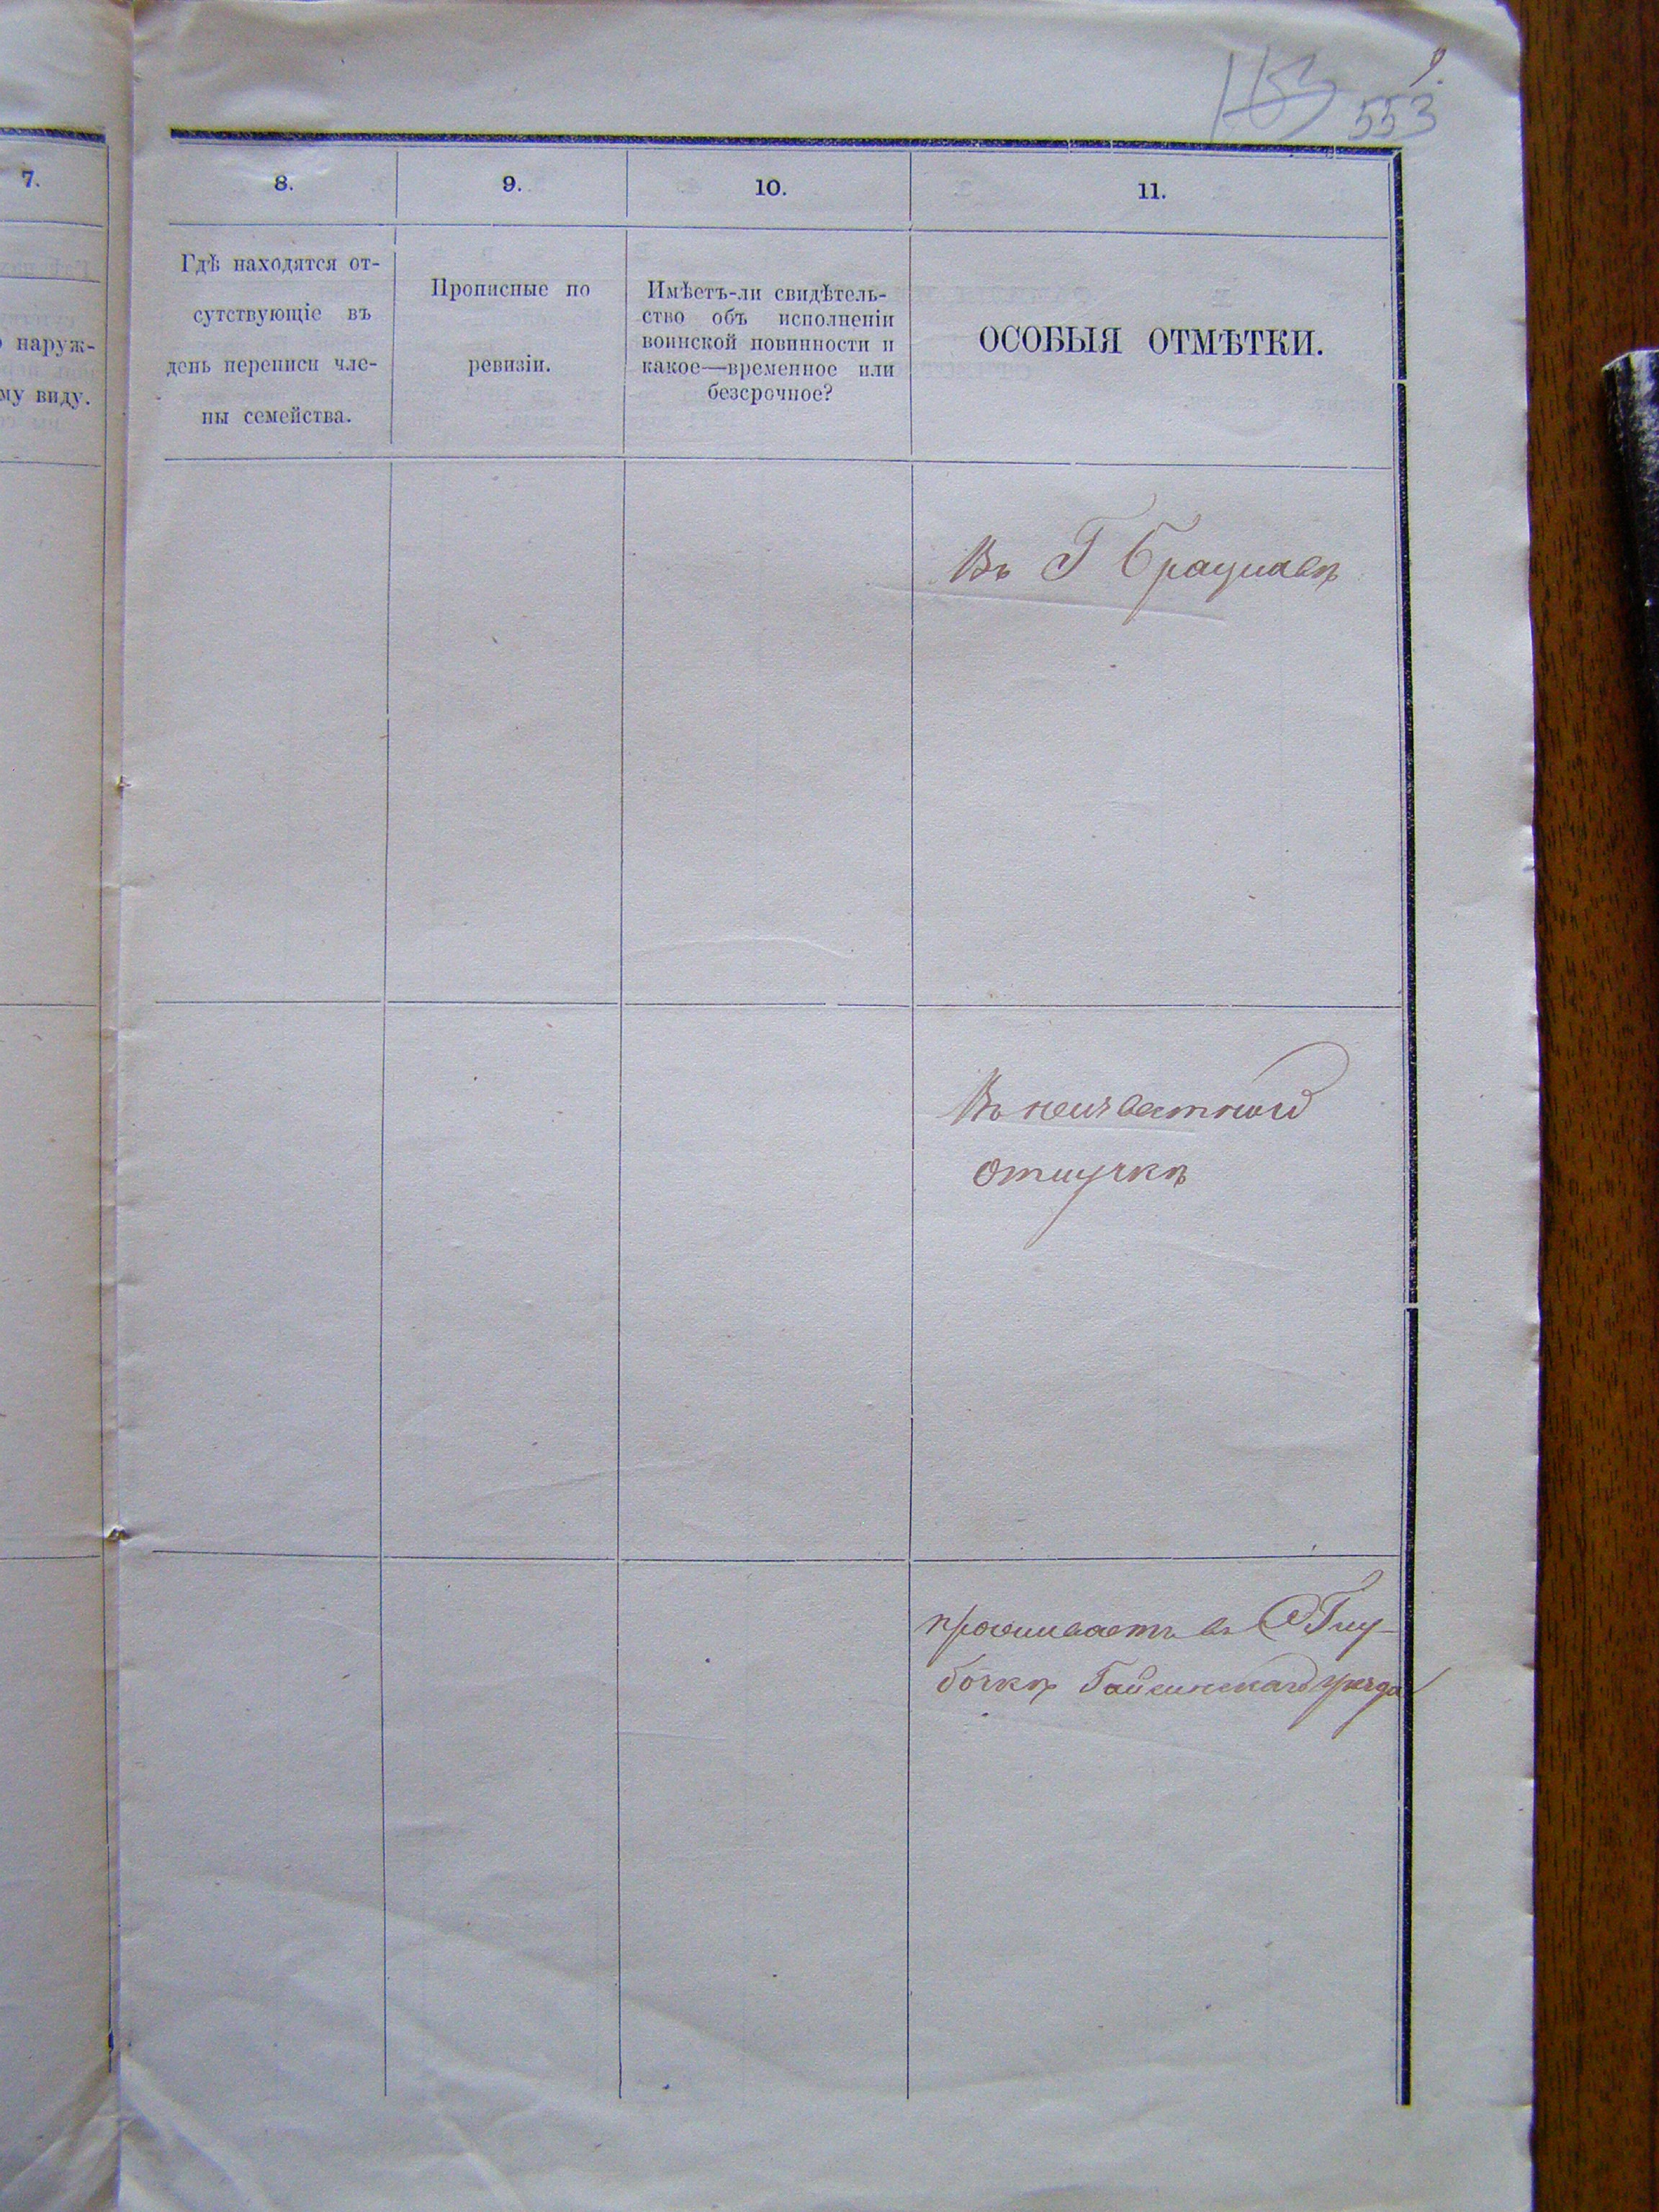 9.
553
7.
8.
9.
10.
11.
наруж-
му виду.
Гдѣ находятся от-
сутствующіе въ
день переписи чле-
ны семейства.
Прописные по
ревизіи.
Имѣетъ-ли свидѣтель-
ство объ исполненіи
воинской повинности и
какое—временное или
безсрочное?
ОСОБЫЯ ОТМѢТКИ.
Въ Г Брацлавѣ
Въ неизвестной
отлучкѣ
проживаетъ въ С Глу-
бочкѣ Гайсинскаго уѣзда